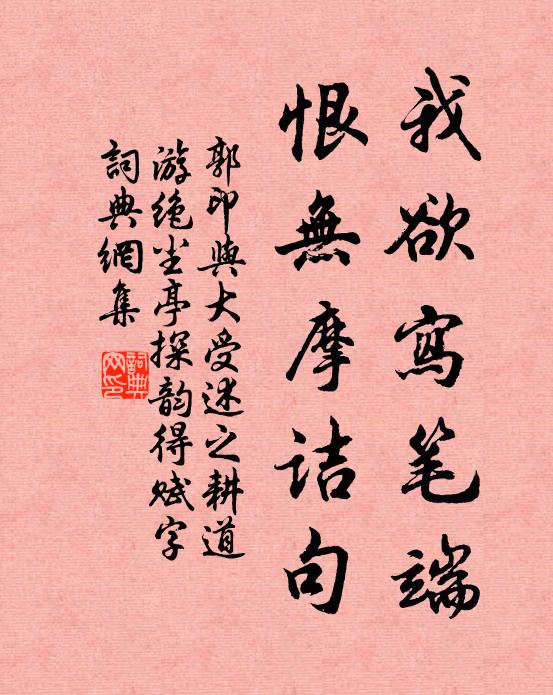 我欲寫笔端
恨無摩詰句
郭印與大受述之耕道
游绝尘亭探韵得赋字
詞典網集
詞典网印